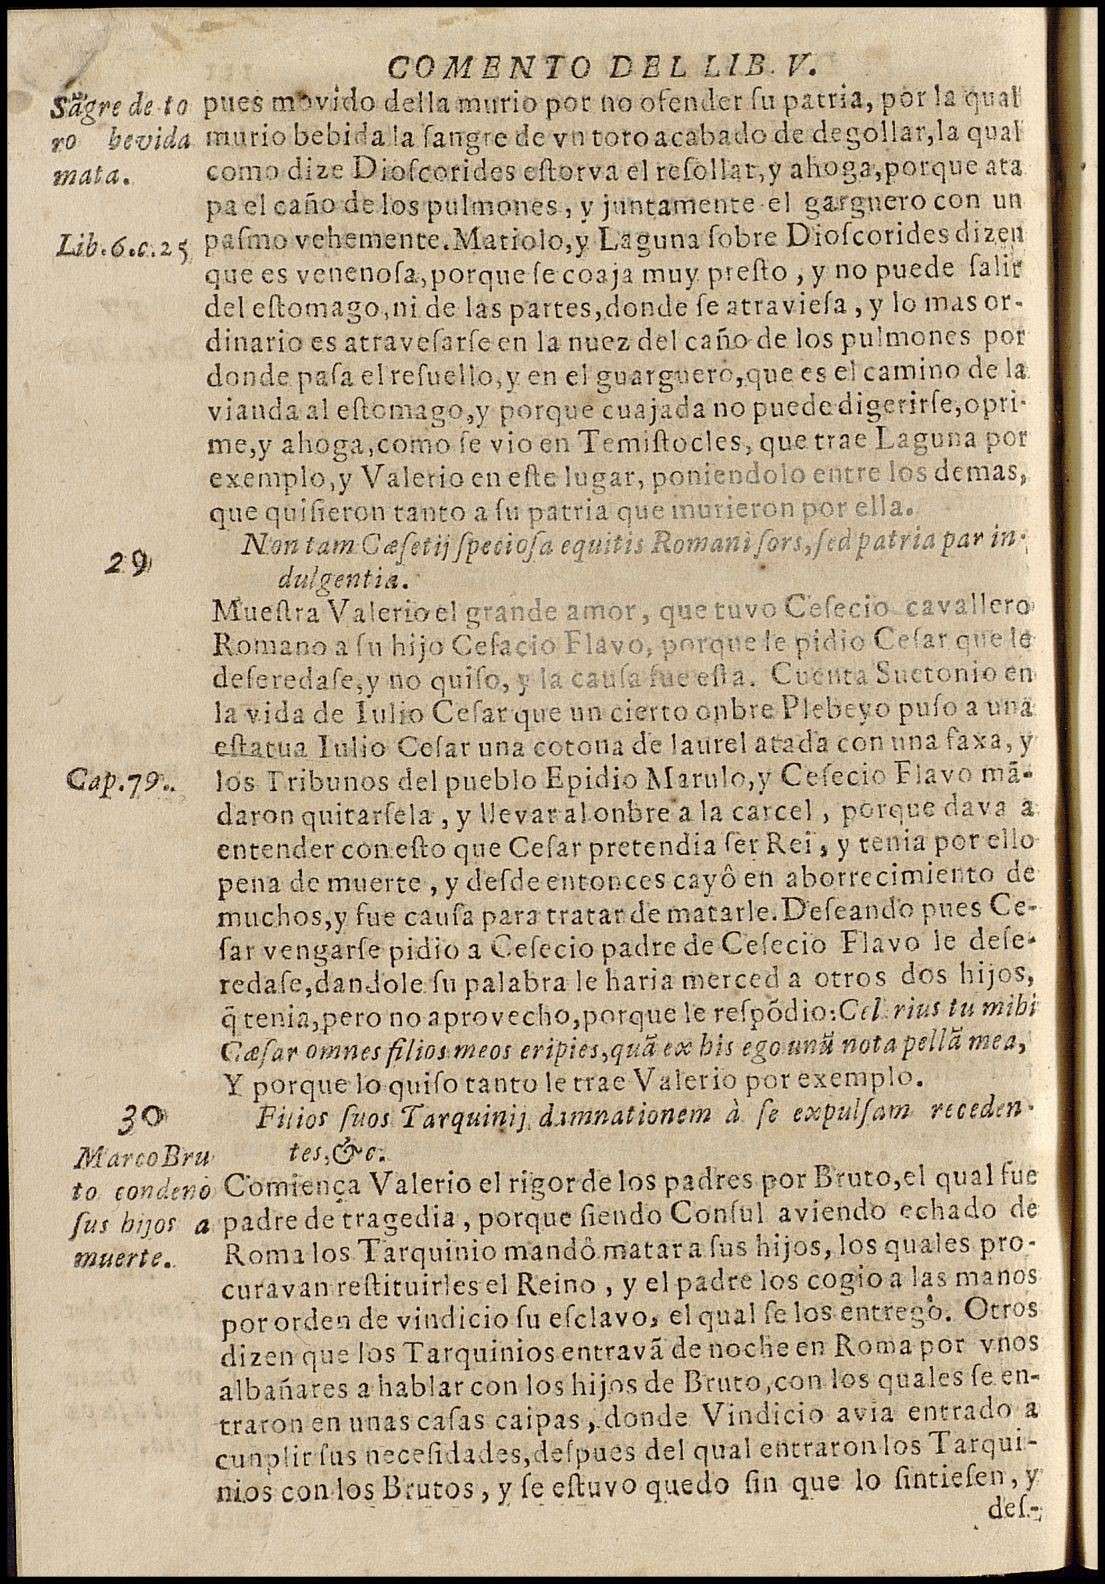 COMENTO DEL LIB. V.
Sãgre de to
ro bevida
mata.
Lib. 6. c. 25
pues movido della murio por no ofender ſu patria, por la qual
murio bebida la ſangre de vn toro acabado de degollar, la qual
como dize Dioſcorides eſtorva el reſollar, y ahoga, porque ata
pa el caño de los pulmones, y juntamente el garguero con un
paſmo vehemente. Matiolo, y Laguna ſobre Dioſcorides dizen
que es venenoſa, porque ſe coaja muy preſto, y no puede ſalir
del eſtomago, ni de las partes, donde ſe atravieſa, y lo mas or-
dinario es atraveſarſe en la nuez del caño de los pulmones por
donde paſa el reſuello, y en el guarguero, que es el camino de la
vianda al eſtomago, y porque cuajada no puede digerirſe, opri-
me, y ahoga, como ſe vio en Temiſtocles, que trae Laguna por
exemplo, y Valerio en eſte lugar, poniendolo entre los demas,
que quiſieron tanto a ſu patria que murieron por ella.
29
Non tam Cæſetij ſpecioſa equitis Romani ſors, ſed patria par in-
dulgentia.
Mueſtra Valerio el grande amor, que tuvo Ceſecio cavallero
Romano a ſu hijo Ceſacio Flavo, porque le pidio Ceſar que le
deſeredaſe, y no quiſo, y la cauſa fue eſta. Cuenta Suetonio en
la vida de Iulio Ceſar que un cierto onbre Plebeyo puſo a una
eſtatua Iulio Ceſar una corona de laurel atada con una faxa, y
Cap. 79.
los Tribunos del pueblo Epidio Marulo, y Ceſecio Flavo mã-
daron quitarſela, y llevar al onbre a la carcel, porque dava a
entender con eſto que Ceſar pretendia ſer Rei, y tenia por ello
pena de muerte, y deſde entonces cayô en aborrecimiento de
muchos, y fue cauſa para tratar de matarle. Deſeando pues Ce-
ſar vengarſe pidio a Ceſecio padre de Ceſecio Flavo le deſe-
redaſe, dandole ſu palabra le haria merced a otros dos hijos,
q̃ tenia, pero no aprovecho, porque le reſpõdio: Celerius tu mihi
Cæſar omnes filios meos eripies, quã ex his ego unũ nota pellã mea,
Y porque lo quiſo tanto le trae Valerio por exemplo.
30
Filios ſuos Tarquinij damnationem à ſe expulſam receden-
tes, &c.
Marco Bru
to condenò
ſus hijos a
muerte.
Comiença Valerio el rigor de los padres por Bruto, el qual fue
padre de tragedia, porque ſiendo Conſul aviendo echado de
Roma los Tarquinio mandô matar a ſus hijos, los quales pro-
curavan reſtituirles el Reino, y el padre los cogio a las manos
por orden de vindicio ſu eſclavo, el qual ſe los entregò. Otros
dizen que los Tarquinios entravã de noche en Roma por vnos
albañares a hablar con los hijos de Bruto, con los quales ſe en-
traron en unas caſas caipas, donde Vindicio avia entrado a
cunplir ſus neceſidades, deſpues del qual entraron los Tarqui-
nios con los Brutos, y ſe eſtuvo quedo ſin que lo ſintieſen, y
deſ-